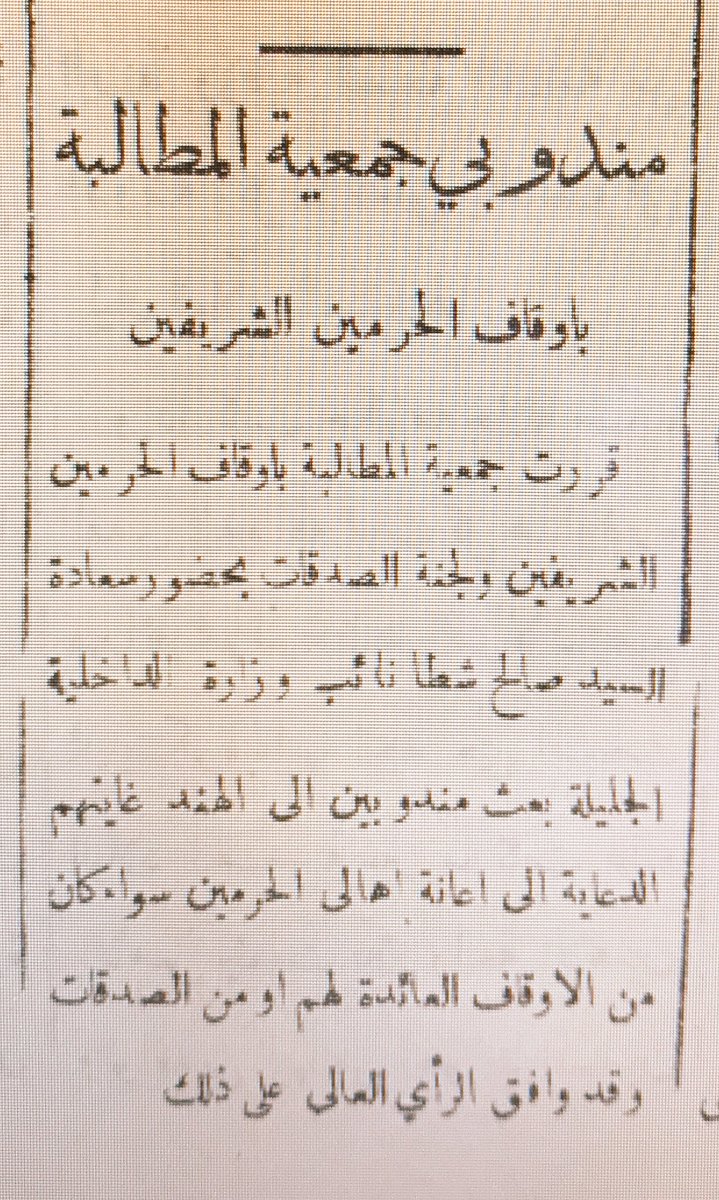 مندوبي جمعية المطالبة
باوقاف الحرمين الشريفين
قررت جمعية المطالبة باوقاف الحرمين
الشريفين ولجنة الصدقات بحضور سعادة
السيد صالح شطا نائب وزارة الداخلية
الجليلة بعث مندوبين الى الهند غايتهم
الدعاية الى اعانة اهالى الحرمين سواء كان
من الاوقاف العائدة لهم او من الصدقات
وقد وافق الرأي العالى على ذلك